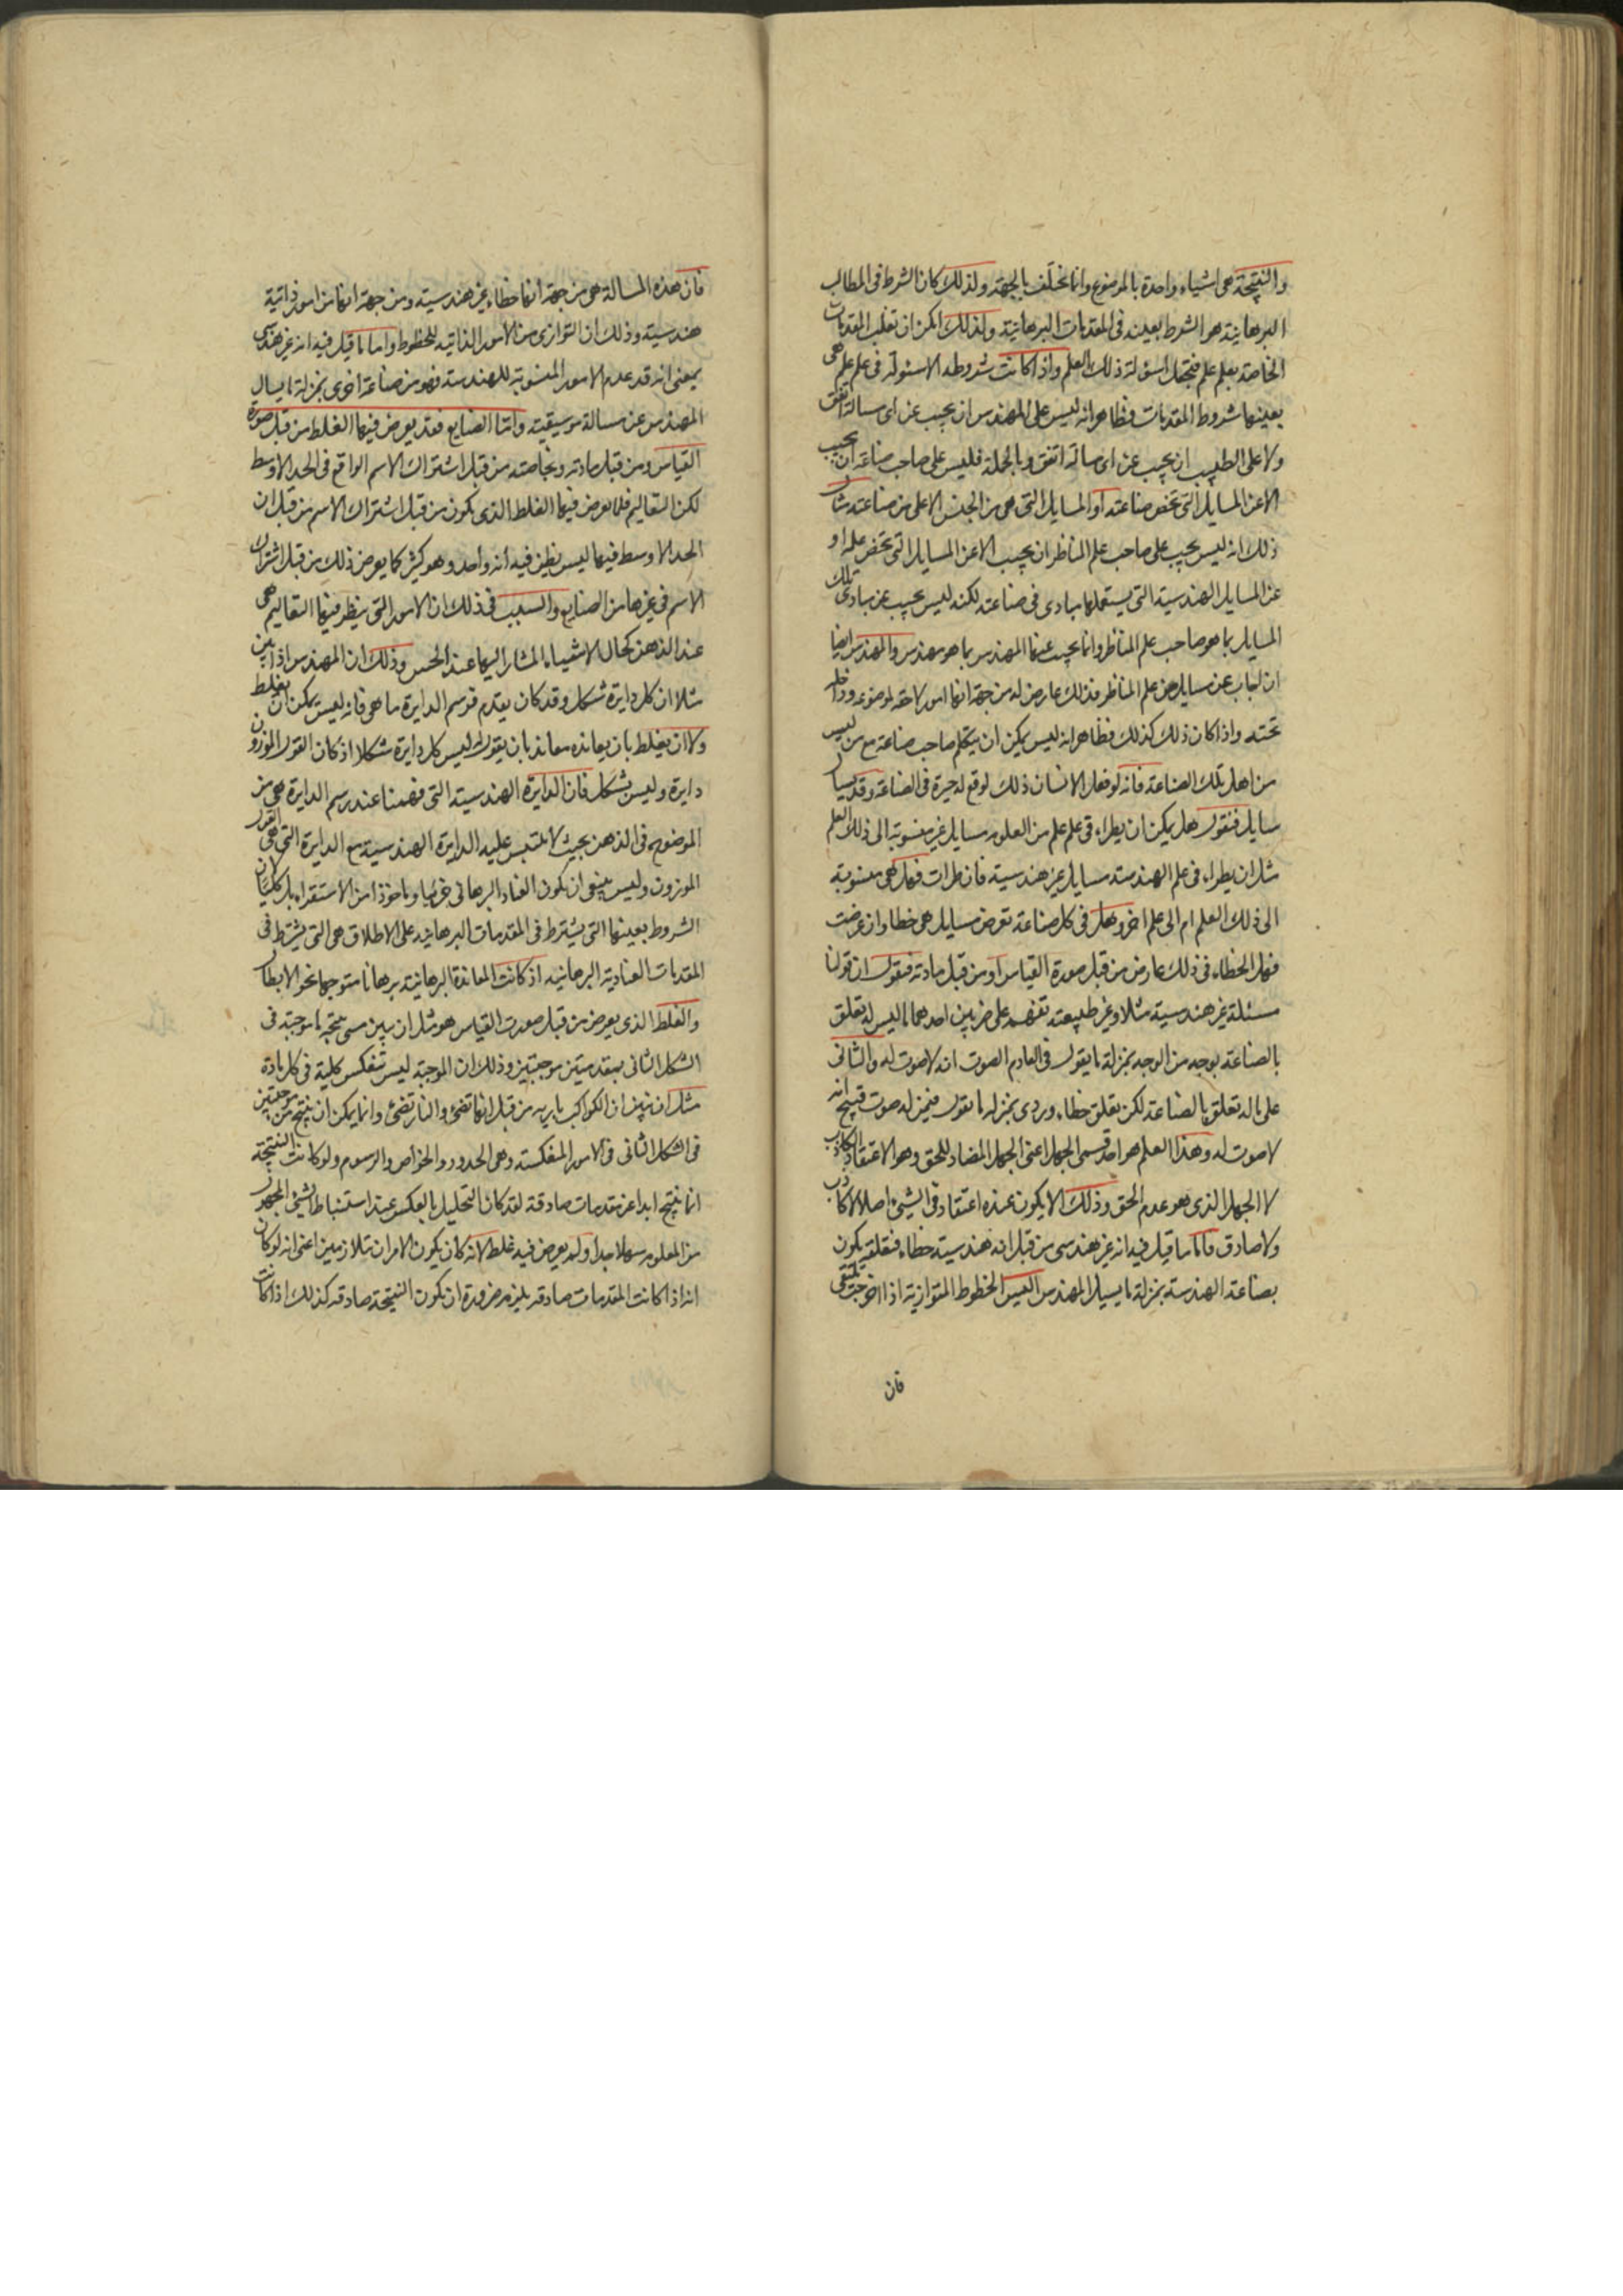 والنتيجة هى اشياء واحدة بالموضوع وانما تختلف بالجهة ولذلك كان الشرط فى المطالب
البرهانية هو الشرط بعينه فى المقدمات البرهانية ولذلك امكن ان تقلب المقدمات
الخاصة بعلم علم فتجعل اسولة ذلك العلم واذا كانت شروط الاسئولة فى علم علم هى
بعينها شروط المقدمات فظاهر انه ليس على المهندس ان يجيب عن اى مسالة اتفق
ولا على الطبيب ان يجيب عن اى مسالة اتفق وبالجملة فليس على صاحب صناعة ان يجيب
الا عن المسايل التى تخص صناعته او المسايل التى هى من الجنس الاعلى من صناعته مثال
ذلك انه ليس يجيب على صاحب علم المناظر ان يجيب الا عن المسايل التى تخص علمه او
عن المسايل الهندسية التى يستعملها مبادى فى صناعته لكنه ليس يجيب عن مبادى تلك
المسايل بما هو صاحب علم المناظر وانما يجيب عنها المهندس بما هو مهندس والمهندس ايضا
ان اجاب عن مسايل من علم المناظر فذلك عارض له من جهة انها امور لاحقة لموضوعه وداخلة
تحته واذا كان ذلك كذلك فظاهر انه ليس يمكن ان يتكلم صاحب صناعة مع من ليس
من اهل تلك الصناعة فانه لو فعل الانسان ذلك لوقع له حيرة فى الصناعة وقد يسال
سايل فنقول هل يمكن ان يطراء فى علم علم من العلوم مسايل غير منسوبة الى ذلك العلم
مثل ان يطراء فى علم الهندسة مسايل غير هندسية فان طرات فهل هى منسوبة
الى ذلك العلم ام الى علم اخر وهل فى كل صناعة تعرض مسايل هى خطا وان عرضت
فهل الخطاء فى ذلك عارض من قبل صورة القياس او من قبل مادته فنقول ان قولنا
مسئلة غير هندسية مثلا وغير طبيعته تفهم على ضربين احدهما ما ليس له تعلق
بالصناعة بوجه من الوجه بمنزلة ما يقول فى العادم الصوت انه لا صوت له والثانى
على ما له تعلق بالصناعة لكن تعلق خطاء وردى بمنزلة ما نقول فيمن له صوت قبيح انه
لا صوت له وهذا العلم هو احد قسمى الجهل اعنى الجهل المضاد للحق وهو الاعتقاد الكاذب
لا الجهل الذى هو عدم الحق وذلك الا يكون عنده اعتقاد فى الشئ اصلا لا كاذب
ولا صادق فاما ما قيل فيه انه غير هندسى من قبل انه هندسية خطاء فتعلقه يكون
بصناعة الهندسة بمنزلة ما يسيل المهندس اليس الخطوط المتوازية اذا اخرجت تلتقى
فان
فان هذه المسالة هى من جهة انها خطاء غير هندسية ومن جهة انها من امور ذاتية
هندسية وذلك ان التوازى من الامور الذاتيه للخطوط واما ما قيل فيه انه غير هندسى
بمعنى انه قد عدم الامور المنسوبة للهندسة فهو من صناعة اخرى بمنزلة ما يسال
المهندس عن مسالة موسيقية واما الصنايع فقد يعرض فيها الغلط من قبل صورة
القياس ومن قبل مادته وبخاصة من قبل اشتراك الاسم الواقع فى الحد الاوسط
لكن التعاليم فلا يعرض فيها الغلط الذى يكون من قبل اشتراك الاسم من قبل ان
الحد الاوسط فيها ليس يظن فيه انه واحد وهو كثير كما يعرض ذلك من قبل اشتراك
الاسم فى غيرها من الصنايع والسبب فى ذلك ان الامور التى ينظر فيها التعاليم هى
عند الذهن كحال الاشياء المشار اليها عند الحس وذلك ان المهندس اذا بين
مثلا ان كل دايرة شكل وقد كان يقدم فرسم الدايرة ما هى فانه ليس يمكن ان يغلط
ولا ان يغلط بان يعانده معاند بان يقول له ليس كل دايرة شكلا اذ كان القول الموزون
دايرة وليس بشكل فان الدايرة الهندسية التى فهمنا عند رسم الدايرة هى من
الموضوع فى الذهن بحيث لا تلتبس عليه الدايرة الهندسية مع الدايرة التى هى القول
الموزون وليس ينبغى ان يكون العناد البرهانى جزئيا وماخوذا من الاستقراء بل كليا لان
الشروط بعينها التى يشترط فى المقدمات البرهانيه على الاطلاق هى التى يشترط فى
المقدمات العنادية البرهانيه اذ كانت المعاندة البرهانية برهانا متوجها نحو الابطال
والغلط الذى يعرض من قبل صورت القياس هو مثل ان يبين مبين نتيجة ما موجبة فى
الشكل الثانى بمقدمتين موجبتين وذلك ان الموجبة ليس تنعكس كلية فى كل مادة
مثل ان نبين ان الكواكب ناريه من قبل انها تضئ والنار تضئ وانما يمكن ان ينتج من موجبتين
فى الشكل الثانى فى الامور المنعكسة وهى الحدود والخواص والرسوم ولو كانت النتيجة
انما ينتج ابدا عن مقدمات صادقة لقد كان التحليل بالعكس عند استنباط الشئ المجهول
من المعلوم سهلا جدا ولم يعرض فيه غلط لانه كان يكون الامران متلازمين اعنى انه لو كان
انه اذا كانت المقدمات صادقه يلزم ضرورة ان تكون النتيجة صادقه كذلك اذا كانت